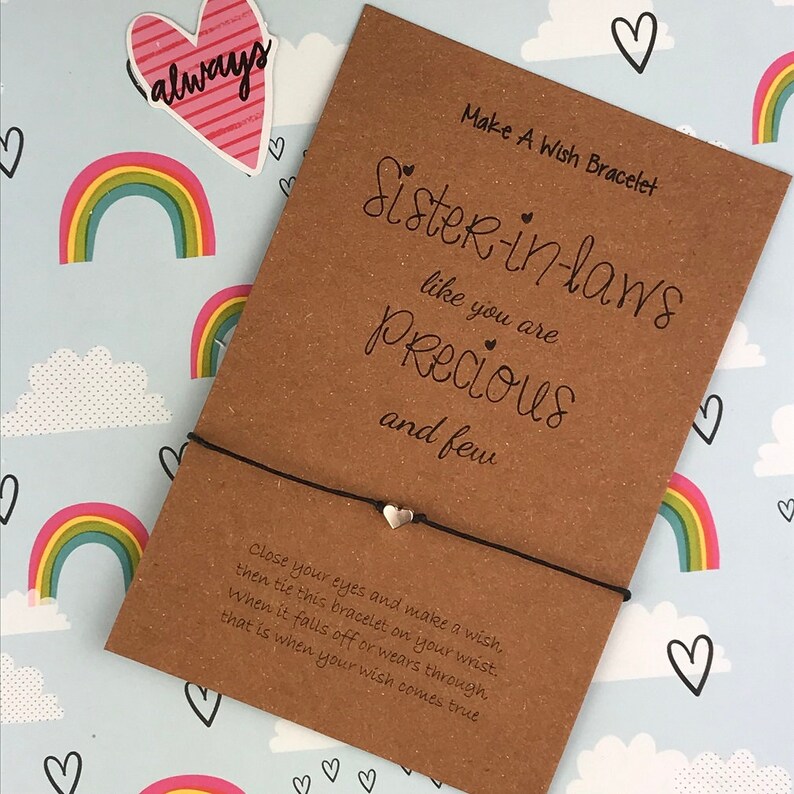 always
Make A Wish Bracelet
Sister-in-laws
like you are
precious
and few
Close your eyes and make a wish,
then tie this bracelet on your wrist.
When it falls off or wears through,
that is when your wish comes true